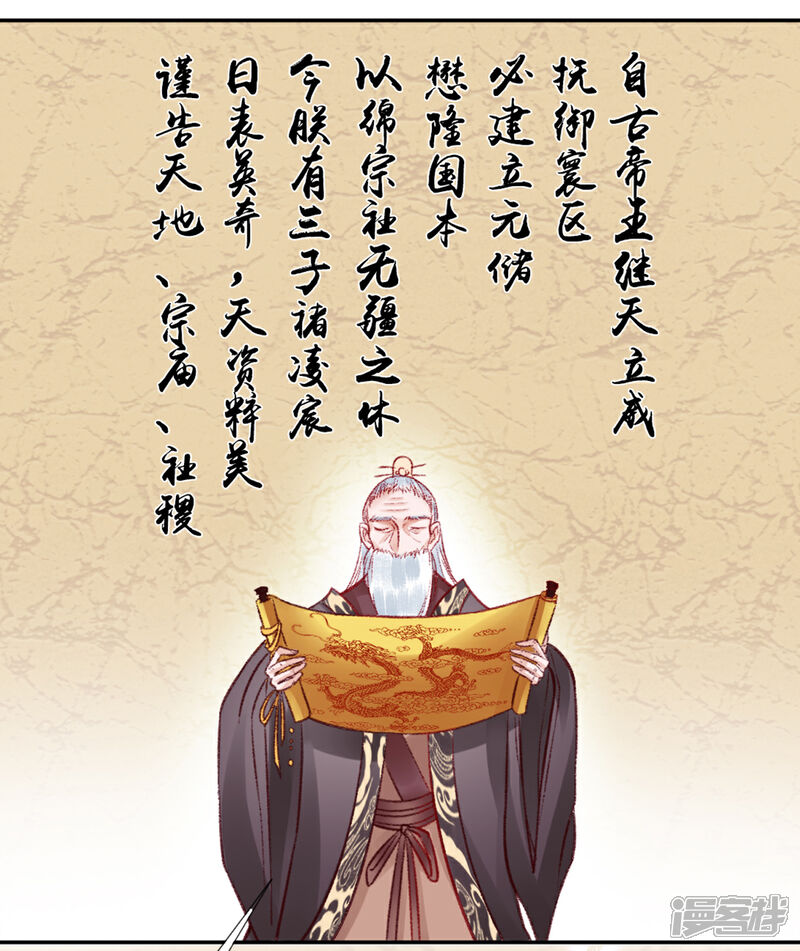 自古帝王继天立威
抚御寰区
必建立元储
懋隆国本
以绵宗社无疆之休
今朕有三子褚凌宸
日表英奇，天资粹美
谨告天地、宗庙、社稷
漫客栈